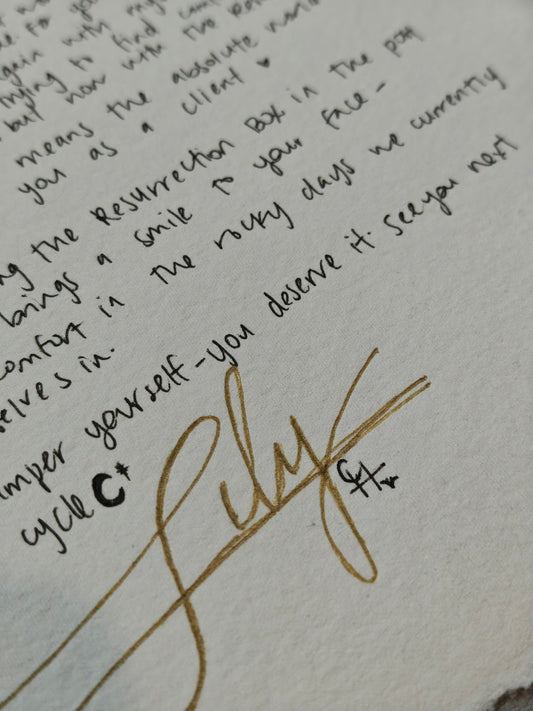 to you
again with my
trying to find
but now with the
means the absolute world
you as a client ♥
the Resurrection Box in the post
brings a smile to your face-
comfort in the rocky days we currently
selves in.
yourself-you deserve it. see you next
cycle
Lily